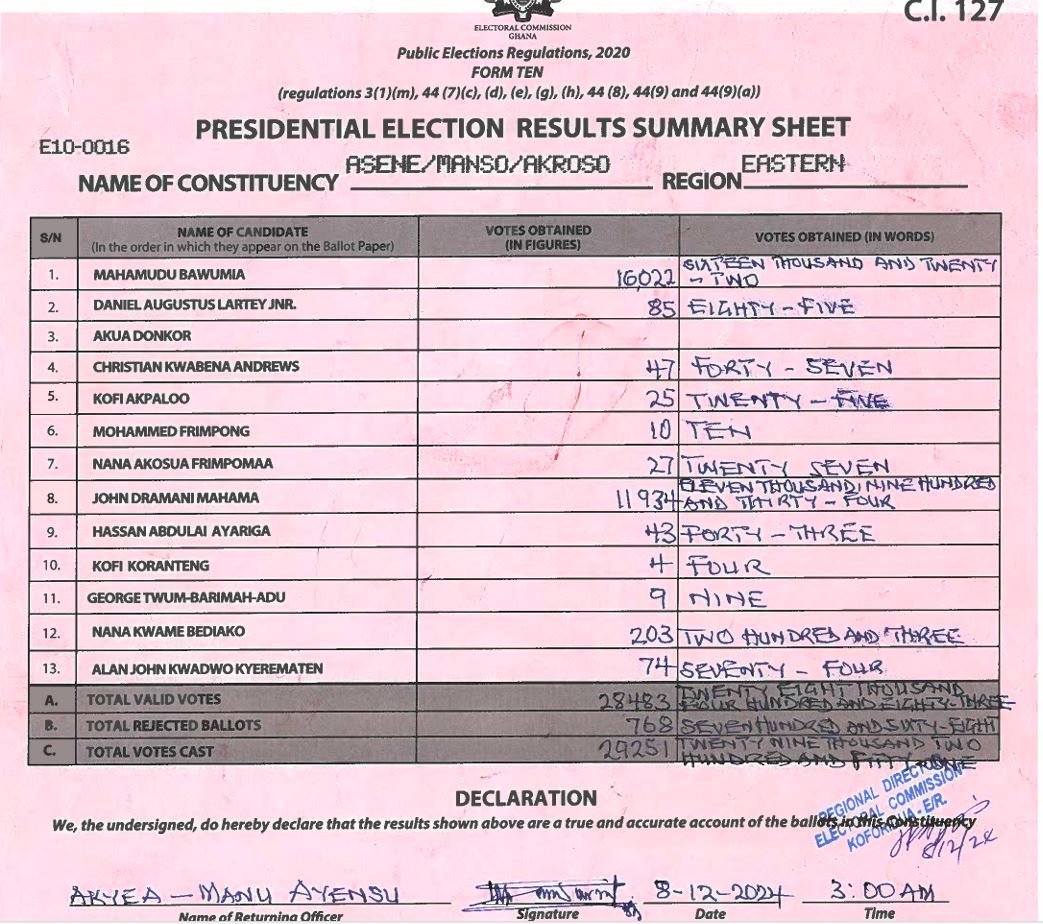 C.I. 127
ELECTORAL COMMISSION
GHANA
Public Elections Regulations, 2020
FORM TEN
(regulations 3(1)(m), 44 (7)(c), (d), (e), (g), (h), 44 (8), 44(9) and 44(9)(a))
PRESIDENTIAL ELECTION RESULTS SUMMARY SHEET
E10-0016
NAME OF CONSTITUENCY ASENE/MANSO/AKROSO REGION EASTERN
S/N NAME OF CANDIDATE (In the order in which they appear on the Ballot Paper) VOTES OBTAINED (IN FIGURES) VOTES OBTAINED (IN WORDS)
1. MAHAMUDU BAWUMIA 16,022 SIXTEEN THOUSAND AND TWENTY - TWO
2. DANIEL AUGUSTUS LARTEY JNR. 85 EIGHTY - FIVE
3. AKUA DONKOR
4. CHRISTIAN KWABENA ANDREWS 47 FORTY - SEVEN
5. KOFI AKPALOO 25 TWENTY - FIVE
6. MOHAMMED FRIMPONG 10 TEN
7. NANA AKOSUA FRIMPOMAA 27 TWENTY SEVEN
8. JOHN DRAMANI MAHAMA 11934 ELEVEN THOUSAND, NINE HUNDRED AND THIRTY - FOUR
9. HASSAN ABDULAI AYARIGA 43 FORTY - THREE
10. KOFI KORANTENG 4 FOUR
11. GEORGE TWUM-BARIMAH-ADU 9 NINE
12. NANA KWAME BEDIAKO 203 TWO HUNDRED AND THREE
13. ALAN JOHN KWADWO KYEREMATEN 74 SEVENTY - FOUR
A. TOTAL VALID VOTES 28483 TWENTY EIGHT THOUSAND FOUR HUNDRED AND EIGHTY-THREE
B. TOTAL REJECTED BALLOTS 768 SEVEN HUNDRED AND SIXTY-EIGHT
C. TOTAL VOTES CAST 29251 TWENTY NINE THOUSAND TWO HUNDRED AND FIFTY ONE
DECLARATION
We, the undersigned, do hereby declare that the results shown above are a true and accurate account of the ballots in this Constituency
REGIONAL DIRECTOR
ELECTORAL COMMISSION
KOFORIDUA - E/R.
8/12/24
AKYEA - MANU AYENSU 8-12-2024 3:00 AM
Name of Returning Officer Signature Date Time